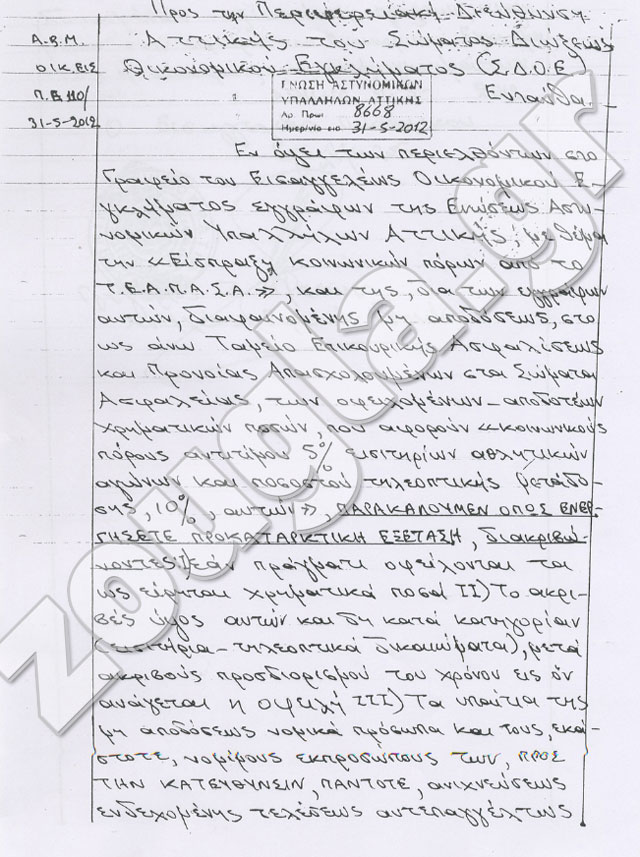 Προς την Περιφερειακή Διεύθυνση
Α.Β.Μ.
Αττικής του Σώματος Διώξεως
ΟΙΚ.ΕΙΣ
Οικονομικού Εγκλήματος (Σ.Δ.Ο.Ε)
Π.Ε 110/
31-5-2012
Ενταύθα.
ΕΝΩΣΗ ΑΣΤΥΝΟΜΙΚΩΝ
ΥΠΑΛΛΗΛΩΝ ΑΤΤΙΚΗΣ
Αρ Πρωτ 8668
Ημερ/νία 31-5-2012
Εν όψει των περιελθόντων στο
Γραφείο του Εισαγγελέως Οικονομικού Ε-
γκλήματος εγγράφων της Ενώσεως Αστυ-
νομικών Υπαλλήλων Αττικής, με θέμα
την «Είσπραξη κοινωνικών πόρων από το
Τ.Ε.Α.Π.Α.Σ.Α.», και της, δια των εγγράφων
αυτών, διαφαινομένης μη αποδόσεως, στο
ως άνω Ταμείο Επικουρικής Ασφαλίσεως
και Προνοίας Απασχολουμένων στα Σώματα
Ασφαλείας, των οφειλομένων-αποδοτέων
χρηματικών ποσών, που αφορούν «κοινωνικούς
πόρους αντιτίμου 5% εισιτηρίων αθλητικών
αγώνων και ποσοστού τηλεοπτικής μετάδο-
σης, 10%, αυτών», ΠΑΡΑΚΑΛΟΥΜΕΝ ΟΠΩΣ ΕΝΕΡ-
ΓΗΣΕΤΕ ΠΡΟΚΑΤΑΡΚΤΙΚΗ ΕΞΕΤΑΣΗ, διακριβώ-
νοντες Ι) εάν πράγματι οφείλονται τα
ως είρηται χρηματικά ποσά ΙΙ) Το ακρι-
βές ύψος αυτών και δη κατά κατηγορίαν
(εισιτήρια-τηλεοπτικά δικαιώματα), μετά
ακριβούς προσδιορισμού του χρόνου εις όν
ανάγεται η οφειλή ΙΙΙ) Τα υπαίτια της
μη αποδόσεως νομικά πρόσωπα και τους, εκά-
στοτε, νομίμους εκπροσώπους των, ΠΡΟΣ
ΤΗΝ ΚΑΤΕΥΘΥΝΣΙΝ, ΠΑΝΤΟΤΕ, ανιχνεύσεως
ενδεχομένης τελέσεως αυτεπαγγέλτως
zougla.gr